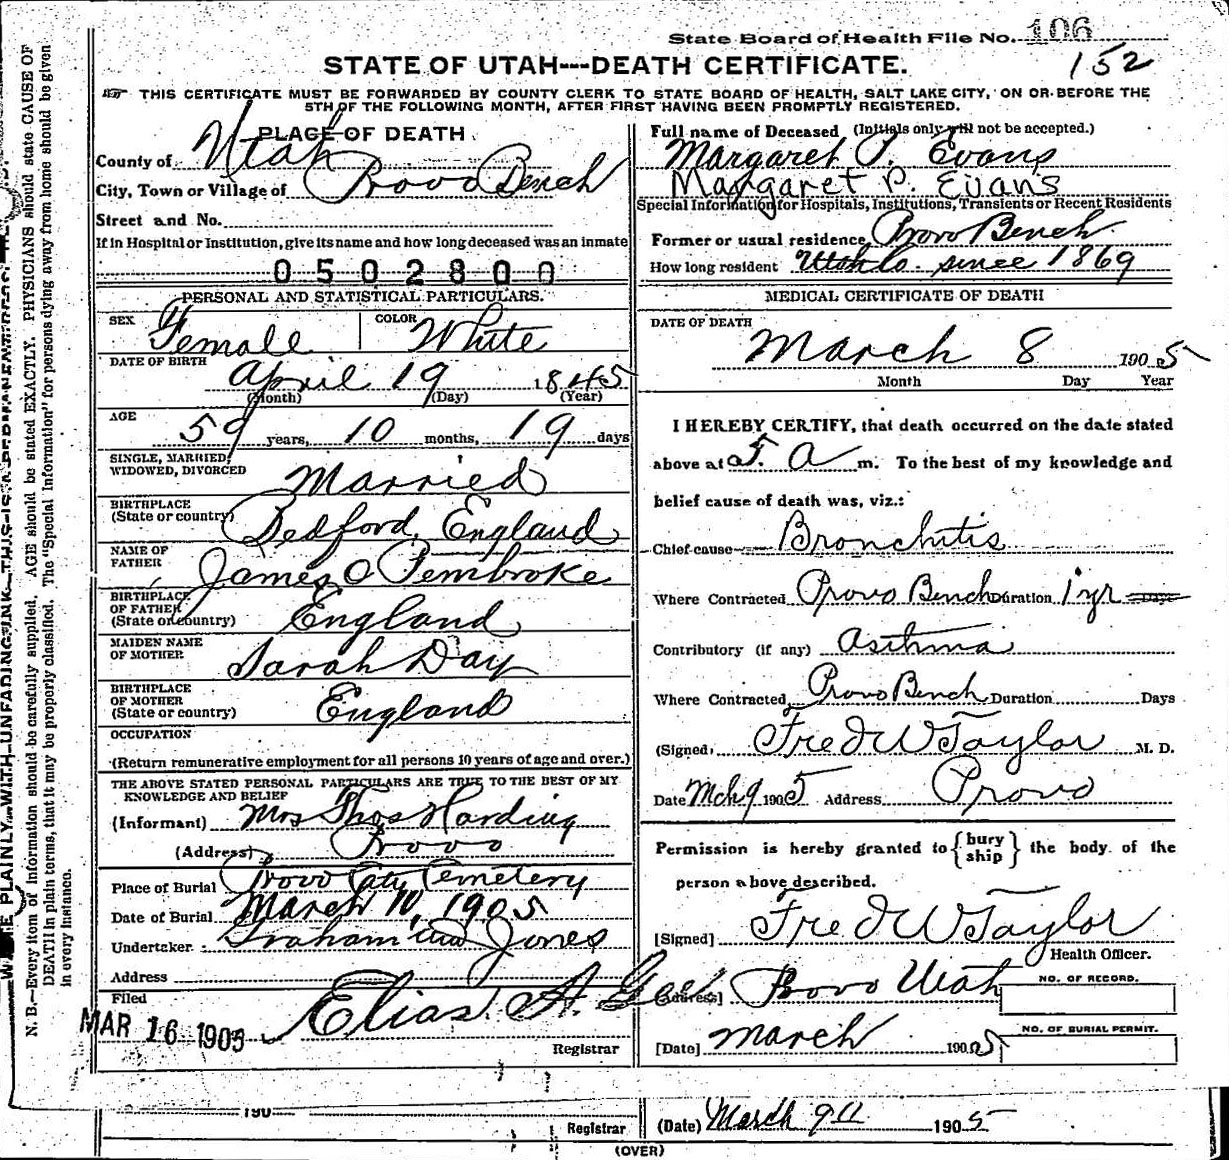 State Board of Health File No. 106
152
STATE OF UTAH---DEATH CERTIFICATE.
THIS CERTIFICATE MUST BE FORWARDED BY COUNTY CLERK TO STATE BOARD OF HEALTH, SALT LAKE CITY, ON OR BEFORE THE
5TH OF THE FOLLOWING MONTH, AFTER FIRST HAVING BEEN PROMPTLY REGISTERED.
PLACE OF DEATH.
County of Utah
City, Town or Village of Provo Bench
Street and No.
If in Hospital or Institution, give its name and how long deceased was an inmate
0502800
PERSONAL AND STATISTICAL PARTICULARS.
SEX Female COLOR White
DATE OF BIRTH April 19 1845
(Month) (Day) (Year)
AGE 59 years, 10 months, 19 days
SINGLE, MARRIED,
WIDOWED, DIVORCED Married
BIRTHPLACE
(State or country) Bedford, England
NAME OF
FATHER James O Pembroke
BIRTHPLACE
OF FATHER
(State or country) England
MAIDEN NAME
OF MOTHER Sarah Day
BIRTHPLACE
OF MOTHER
(State or country) England
OCCUPATION
(Return remunerative employment for all persons 10 years of age and over.)
THE ABOVE STATED PERSONAL PARTICULARS ARE TRUE TO THE BEST OF MY
KNOWLEDGE AND BELIEF
(Informant) Mrs Thos Harding
(Address) Provo
Place of Burial Provo City Cemetery
Date of Burial March 10, 1905
Undertaker Graham and Jones
Address
Filed
MAR 16 1905 Elias A. Gee
Registrar
Full name of Deceased (Initials only will not be accepted.)
Margaret P. Evans
Margaret P. Evans
Special Information for Hospitals, Institutions, Transients or Recent Residents
Former or usual residence Provo Bench
How long resident Utah Co. since 1869
MEDICAL CERTIFICATE OF DEATH
DATE OF DEATH
March 8 1905
Month Day Year
I HEREBY CERTIFY, that death occurred on the date stated
above at 5. a m. To the best of my knowledge and
belief cause of death was, viz.:
Chief cause Bronchitis
Where Contracted Provo Bench Duration 1 yr Days
Contributory (if any) Asthma
Where Contracted Provo Bench Duration Days
(Signed) Fred W Taylor M. D.
Date Mch 9 1905 Address Provo
Permission is hereby granted to {bury
ship} the body of the
person above described.
[Signed] Fred W Taylor
Health Officer.
[Address] Provo Utah
NO. OF RECORD.
NO. OF BURIAL PERMIT.
[Date] March 1905
190
Registrar
(Date) March 9 1905
(OVER)
PLAINLY WITH UNFADING INK—THIS IS A PERMANENT
N. B.—Every item of information should be carefully supplied. AGE should be stated EXACTLY. PHYSICIANS should state CAUSE OF
DEATH in plain terms, that it may be properly classified. The "Special Information" for persons dying away from home should be given
in every instance.